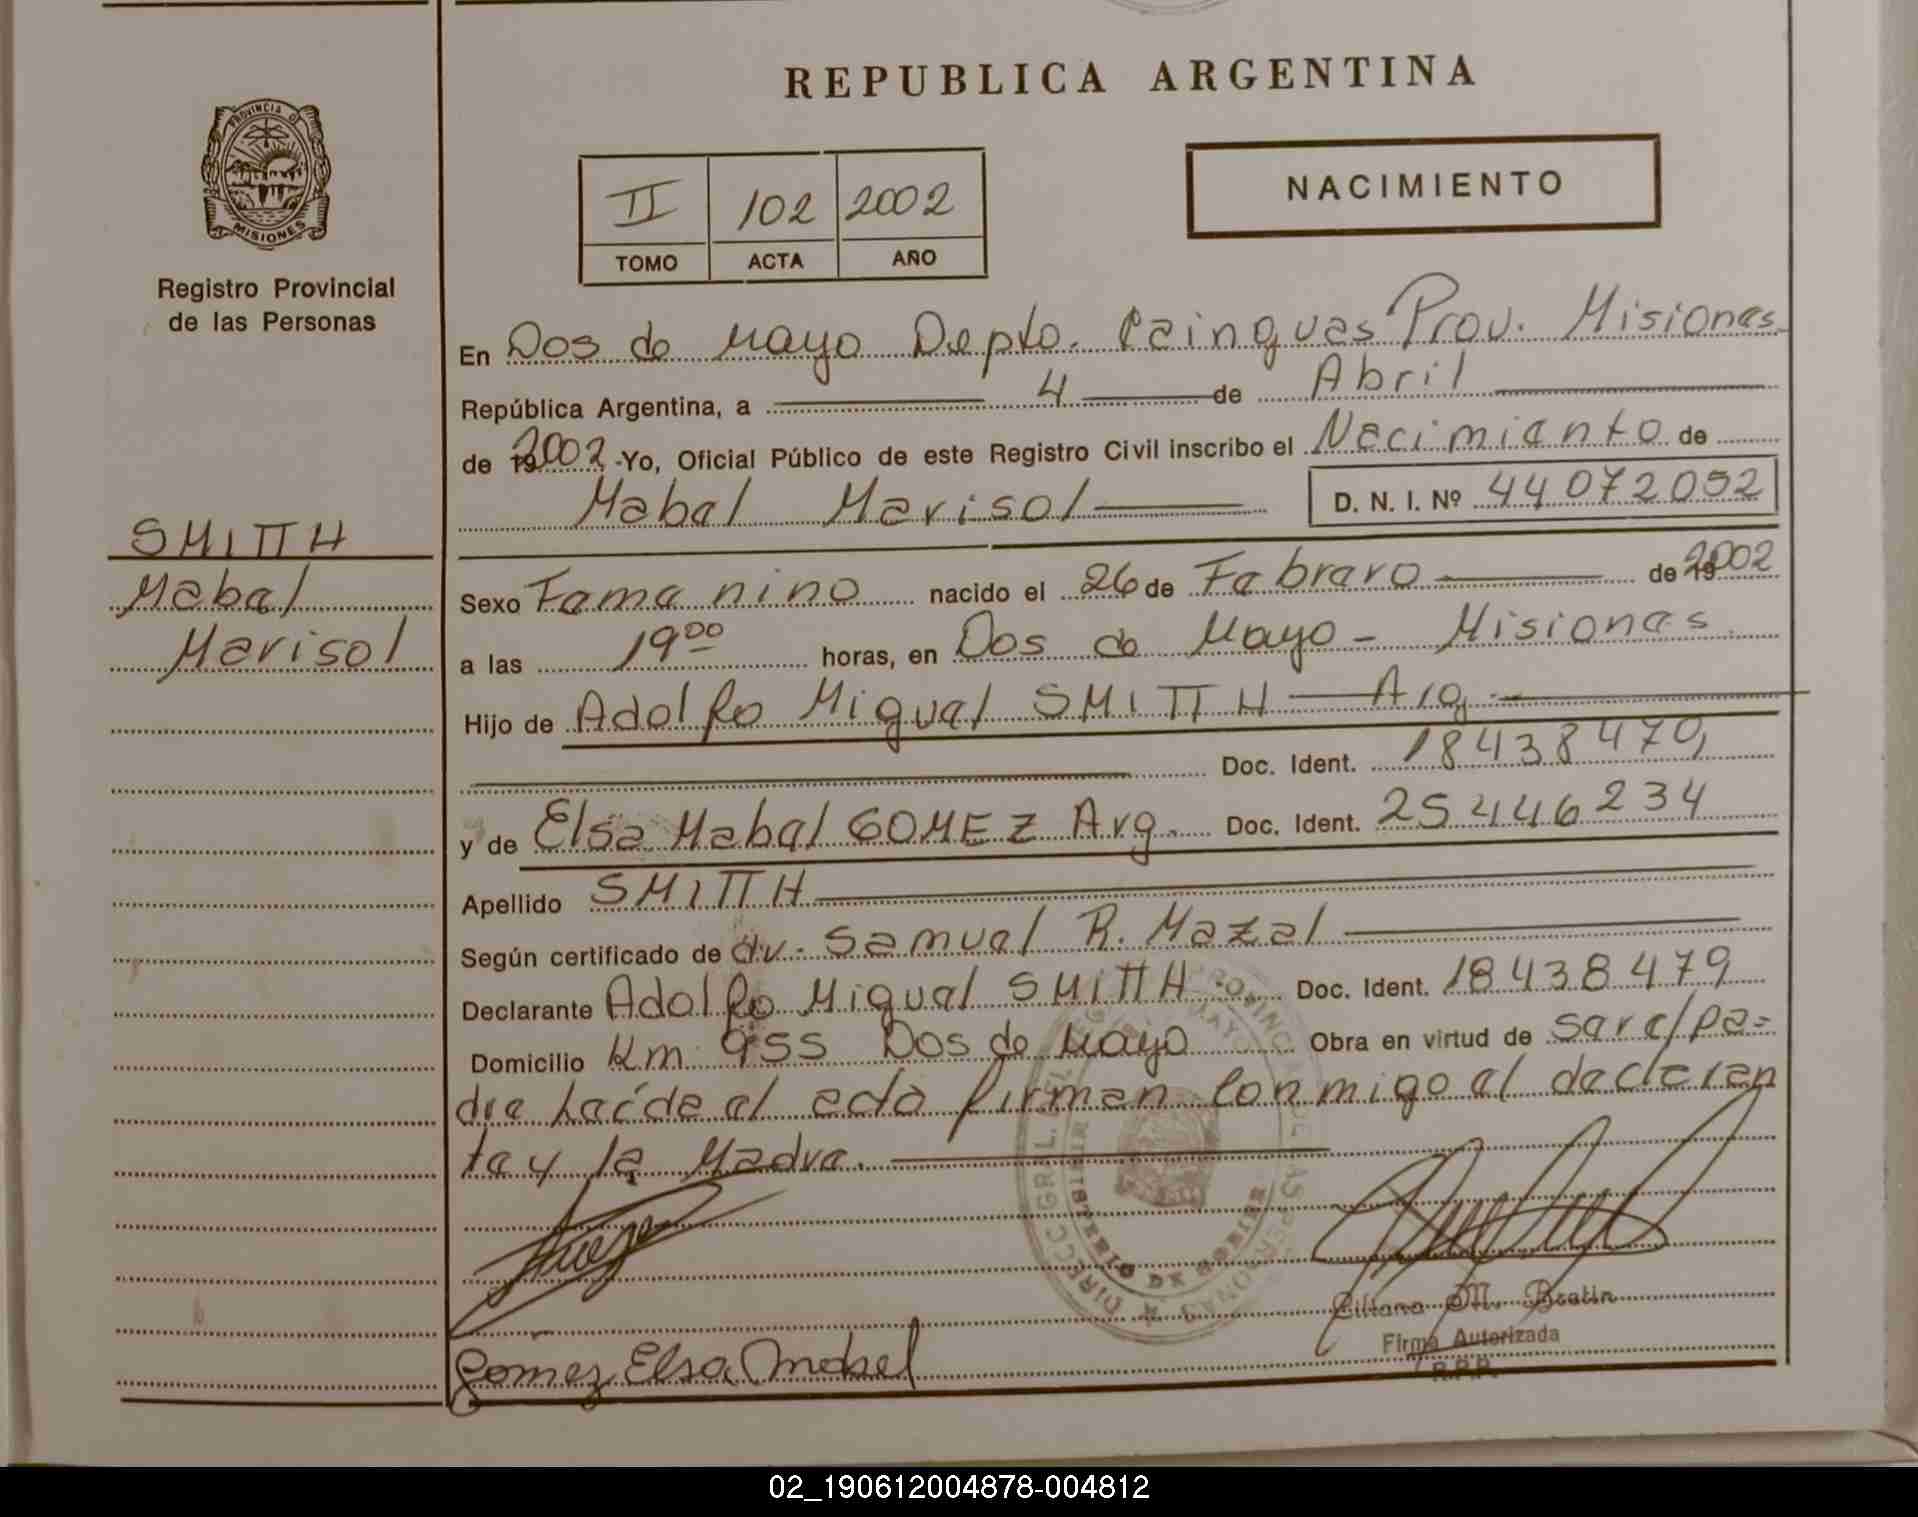 REPUBLICA ARGENTINA
PROVINCIA D
MISIONES
Registro Provincial
de las Personas
II 102 2002
TOMO ACTA AÑO
NACIMIENTO
En Dos de Mayo Depto. Cainguas Prov. Misiones
República Argentina, a 4 de Abril
de 2002 -Yo, Oficial Público de este Registro Civil inscribo el Nacimiento de
Mabel Marisol D. N. I. Nº 44072052
SMITH
Mabel
Marisol
Sexo Femenino nacido el 26 de Febrero de 2002
a las 19 00 horas, en Dos de Mayo - Misiones
Hijo de Adolfo Miguel SMITH Arg.
Doc. Ident. 18438479
y de Elsa Mabel GOMEZ Arg. Doc. Ident. 25446234
Apellido SMITH
Según certificado de dr. Samuel R. Mazal
Declarante Adolfo Miguel SMITH Doc. Ident. 18438479
Domicilio Km 955 Dos de Mayo Obra en virtud de ser el pa=
dre Leída el acta firman Conmigo el declaran
te y la Madre.
Gomez Elsa Mabel
Firma Autorizada
R.P.P.
02_190612004878-004812